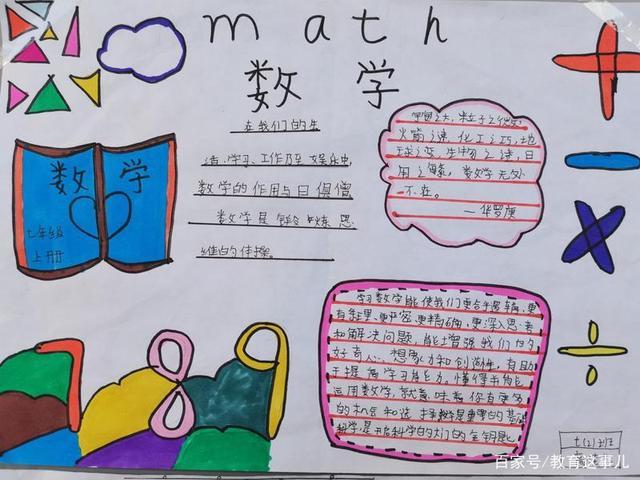 math
数学
在我们的生
活、学习、工作乃至娱乐中,
数学的作用与日俱僧
数学是锻炼思
维的体操。
数学
七年级
上册
宇宙之大,粒子之微,
火箭之速,化工之巧,地
球之变,生物之谜,日
用之繁,数学无处
不在。
—华罗庚
学习数学能使我们更合乎逻辑、更
有条理、更严密、更精确、更深入思考
和解决问题,能增强我们的
好奇心、想象力和创造性,有助
于提高学习能力,懂得
运用数学,就意味着你有更多
的机会和选择。数学是重要的基础
科学,是开启科学的大门的金钥匙
七(2)班
百家号/教育这事儿